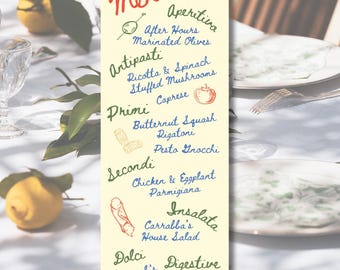 Aperitivo
After Hours
Marinated Olives
Antipasti
Ricotta & Spinach
Stuffed Mushrooms
Caprese
Primi
Butternut Squash
Rigatoni
Pesto Gnocchi
Secondi
Chicken & Eggplant
Parmigiana
Insalata
Carrabba's
House Salad
Dolci
Digestive